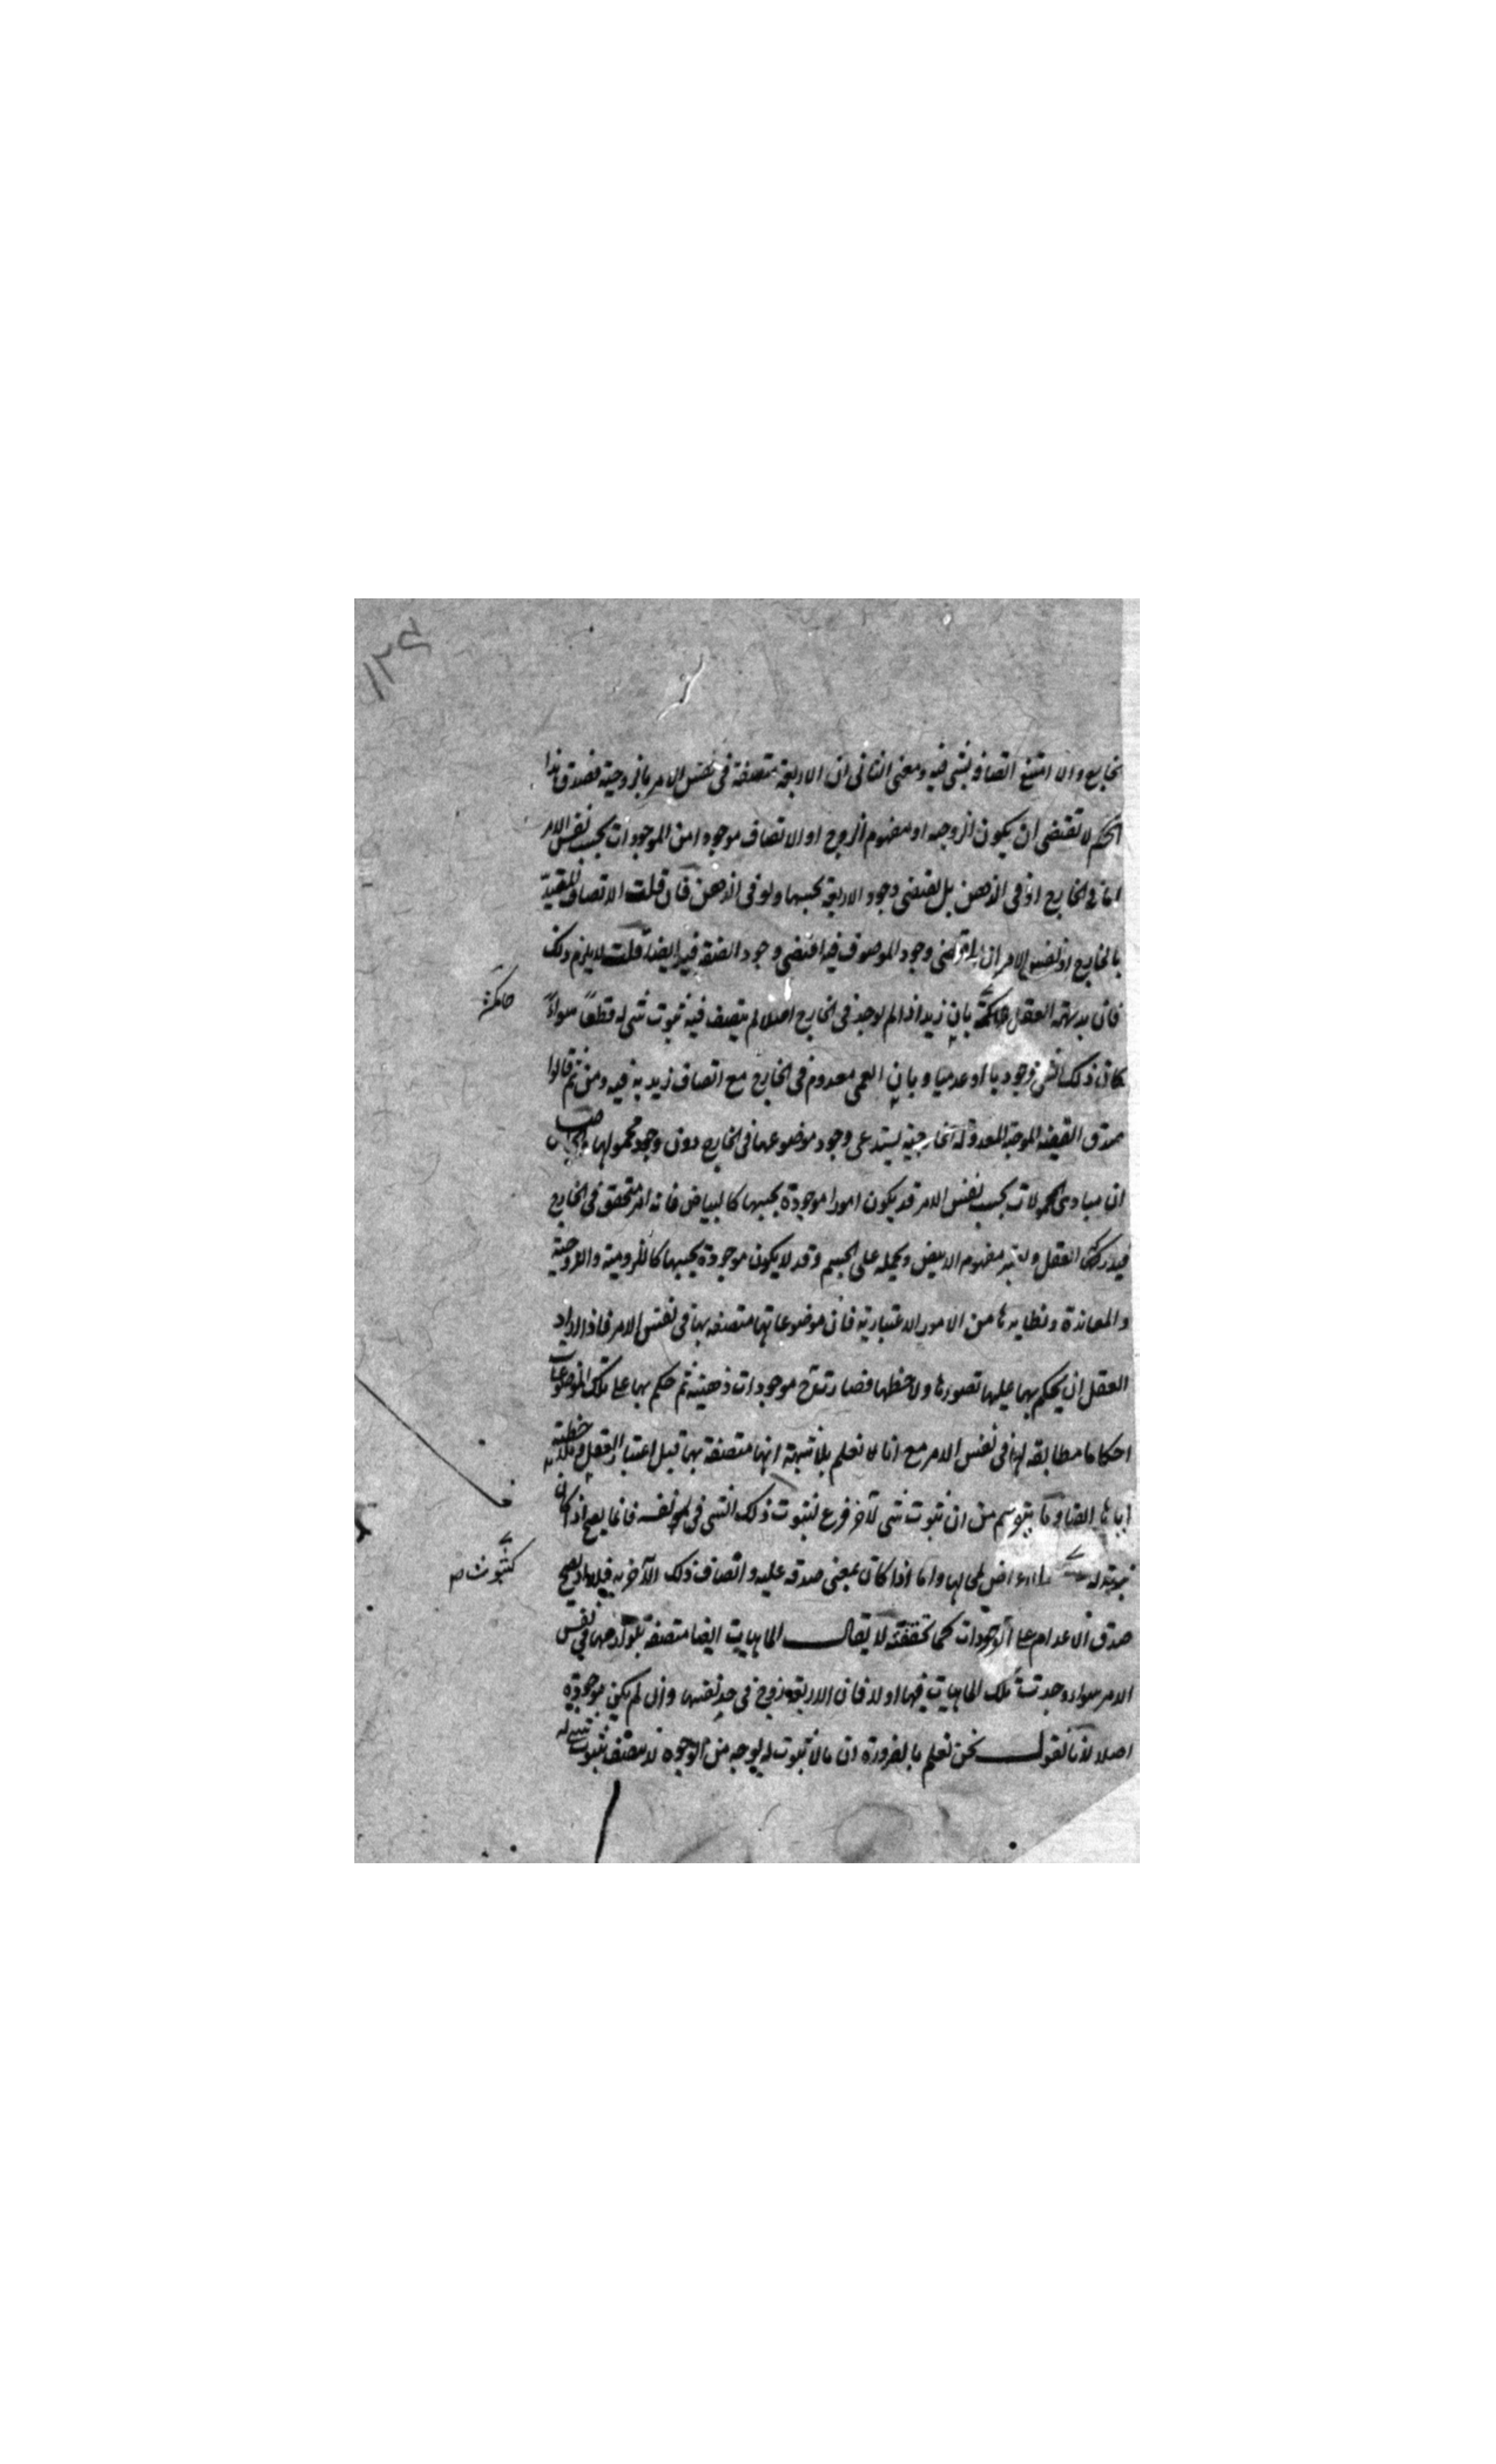 ١٢٤
الخارج والا امتنع اتصافه بشى فيه ومعنى الثانى ان الاربعة متصفة فى نفس الامر بالزوجية فصدق هذا
الحكم لا تقتضى ان يكون الزوجيه او مفهوم الزوج او الاتصاف موجودا من الموجودات بحسب نفس الامر
اما فى الخارج او فى الذهن بل يقتضى وجود الاربعة بحسبها ولو فى الذهن فان قلت الاتصاف المقيد
بالخارج او نفس الامر ان اقتضى وجود الموصوف فيه اقتضى وجود الصفة فيه ايضا قلت لا يلزم ذلك
فان بديهة العقل حاكمة بان زيدا اذا لم يوجد فى الخارج اصلا لم يتصف فيه ثبوت شى له قطعا سواء
حاكمة
كان ذلك الشى وجوديا او عدميا وبان العمى معدوم فى الخارج مع اتصاف زيد به فيه ومن ثم قالوا
صدق القضية الموجبة المعدولة الخارجية يستدعى وجود موضوعها فى الخارج دون وجود محمولها
ان مبادى المحمولات بحسب نفس الامر قد يكون امورا موجودة بحسبها كالبياض فانه امر متحقق فى الخارج
فيدركه العقل ويعتبر مفهوم الابيض ويحمله على الجسم وقد لا يكون موجودة بحسبها كاللزومية والزوجية
والمعاندة ونظايرها من الامور الاعتبارية فان موضوعاتها متصفه بها فى نفس الامر فاذا اراد
العقل ان يحكم بها عليها تصورها ولاحظها فصارت ح موجودات ذهنية ثم حكم بها على تلك الموضوعات
احكاما مطابقه لها فى نفس الامر مع انا نعلم بلا شبهة انها متصفة بها قبل اعتبار العقل وملاحظته
اياها ايضا وما يتوهم من ان ثبوت شى لآخر فرع لثبوت ذلك الشى فى نفسه فانما يصح اذا كان
ثبوته له الاعراض لمحالها واما اذا كان بمعنى صدقه عليه واتصاف ذلك الآخر به فلا اذ يصح
كثبوت صح
صدق الاعدام على الموجودات كما تحققته لا يقال الماهيات ايضا متصفة بلوازمها فى نفس
الامر سواء وجدت تلك الماهيات فيها اولا فان الاربعة زوج فى حد نفسها وان لم يكن موجودة
اصلا لانا نقول نحن نعلم بالضرورة ان ما لا ثبوت له بوجه من الوجوه لا يتصف بثبوت شى له